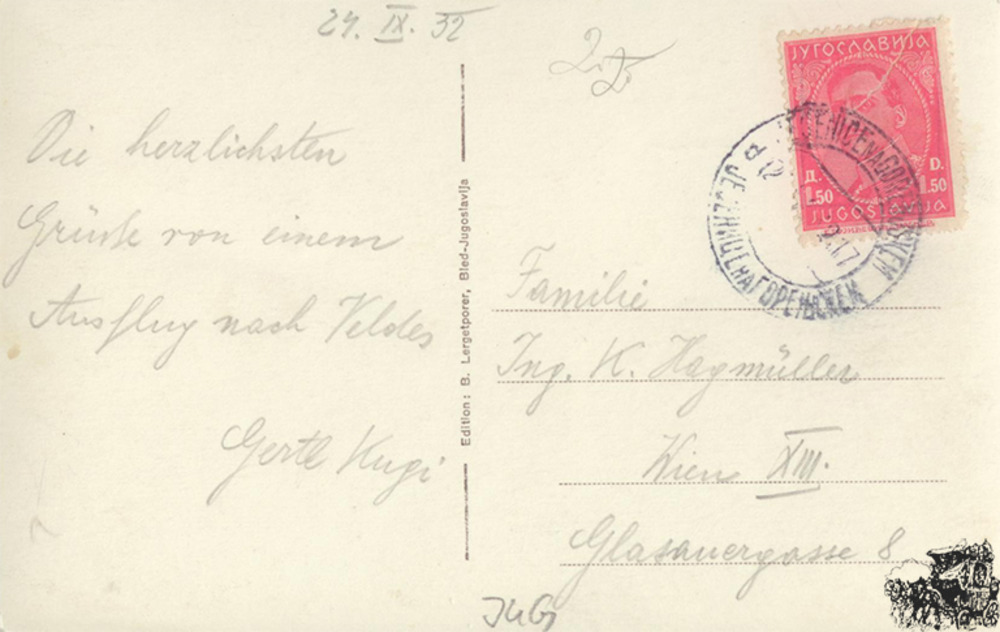 24. IX. 32
Die herzlichsten
Grüße von einem
Ausflug nach Veldes
Gertl Kugi
Edition: B. Lergetporer, Bled-Jugoslavija
ЈУГОСЛАВИЈА
Д. D.
1.50 1.50
JUGOSLAVIJA
Familie
Ing. K. Hagmüller
Wien XIII.
Glasauergasse 8